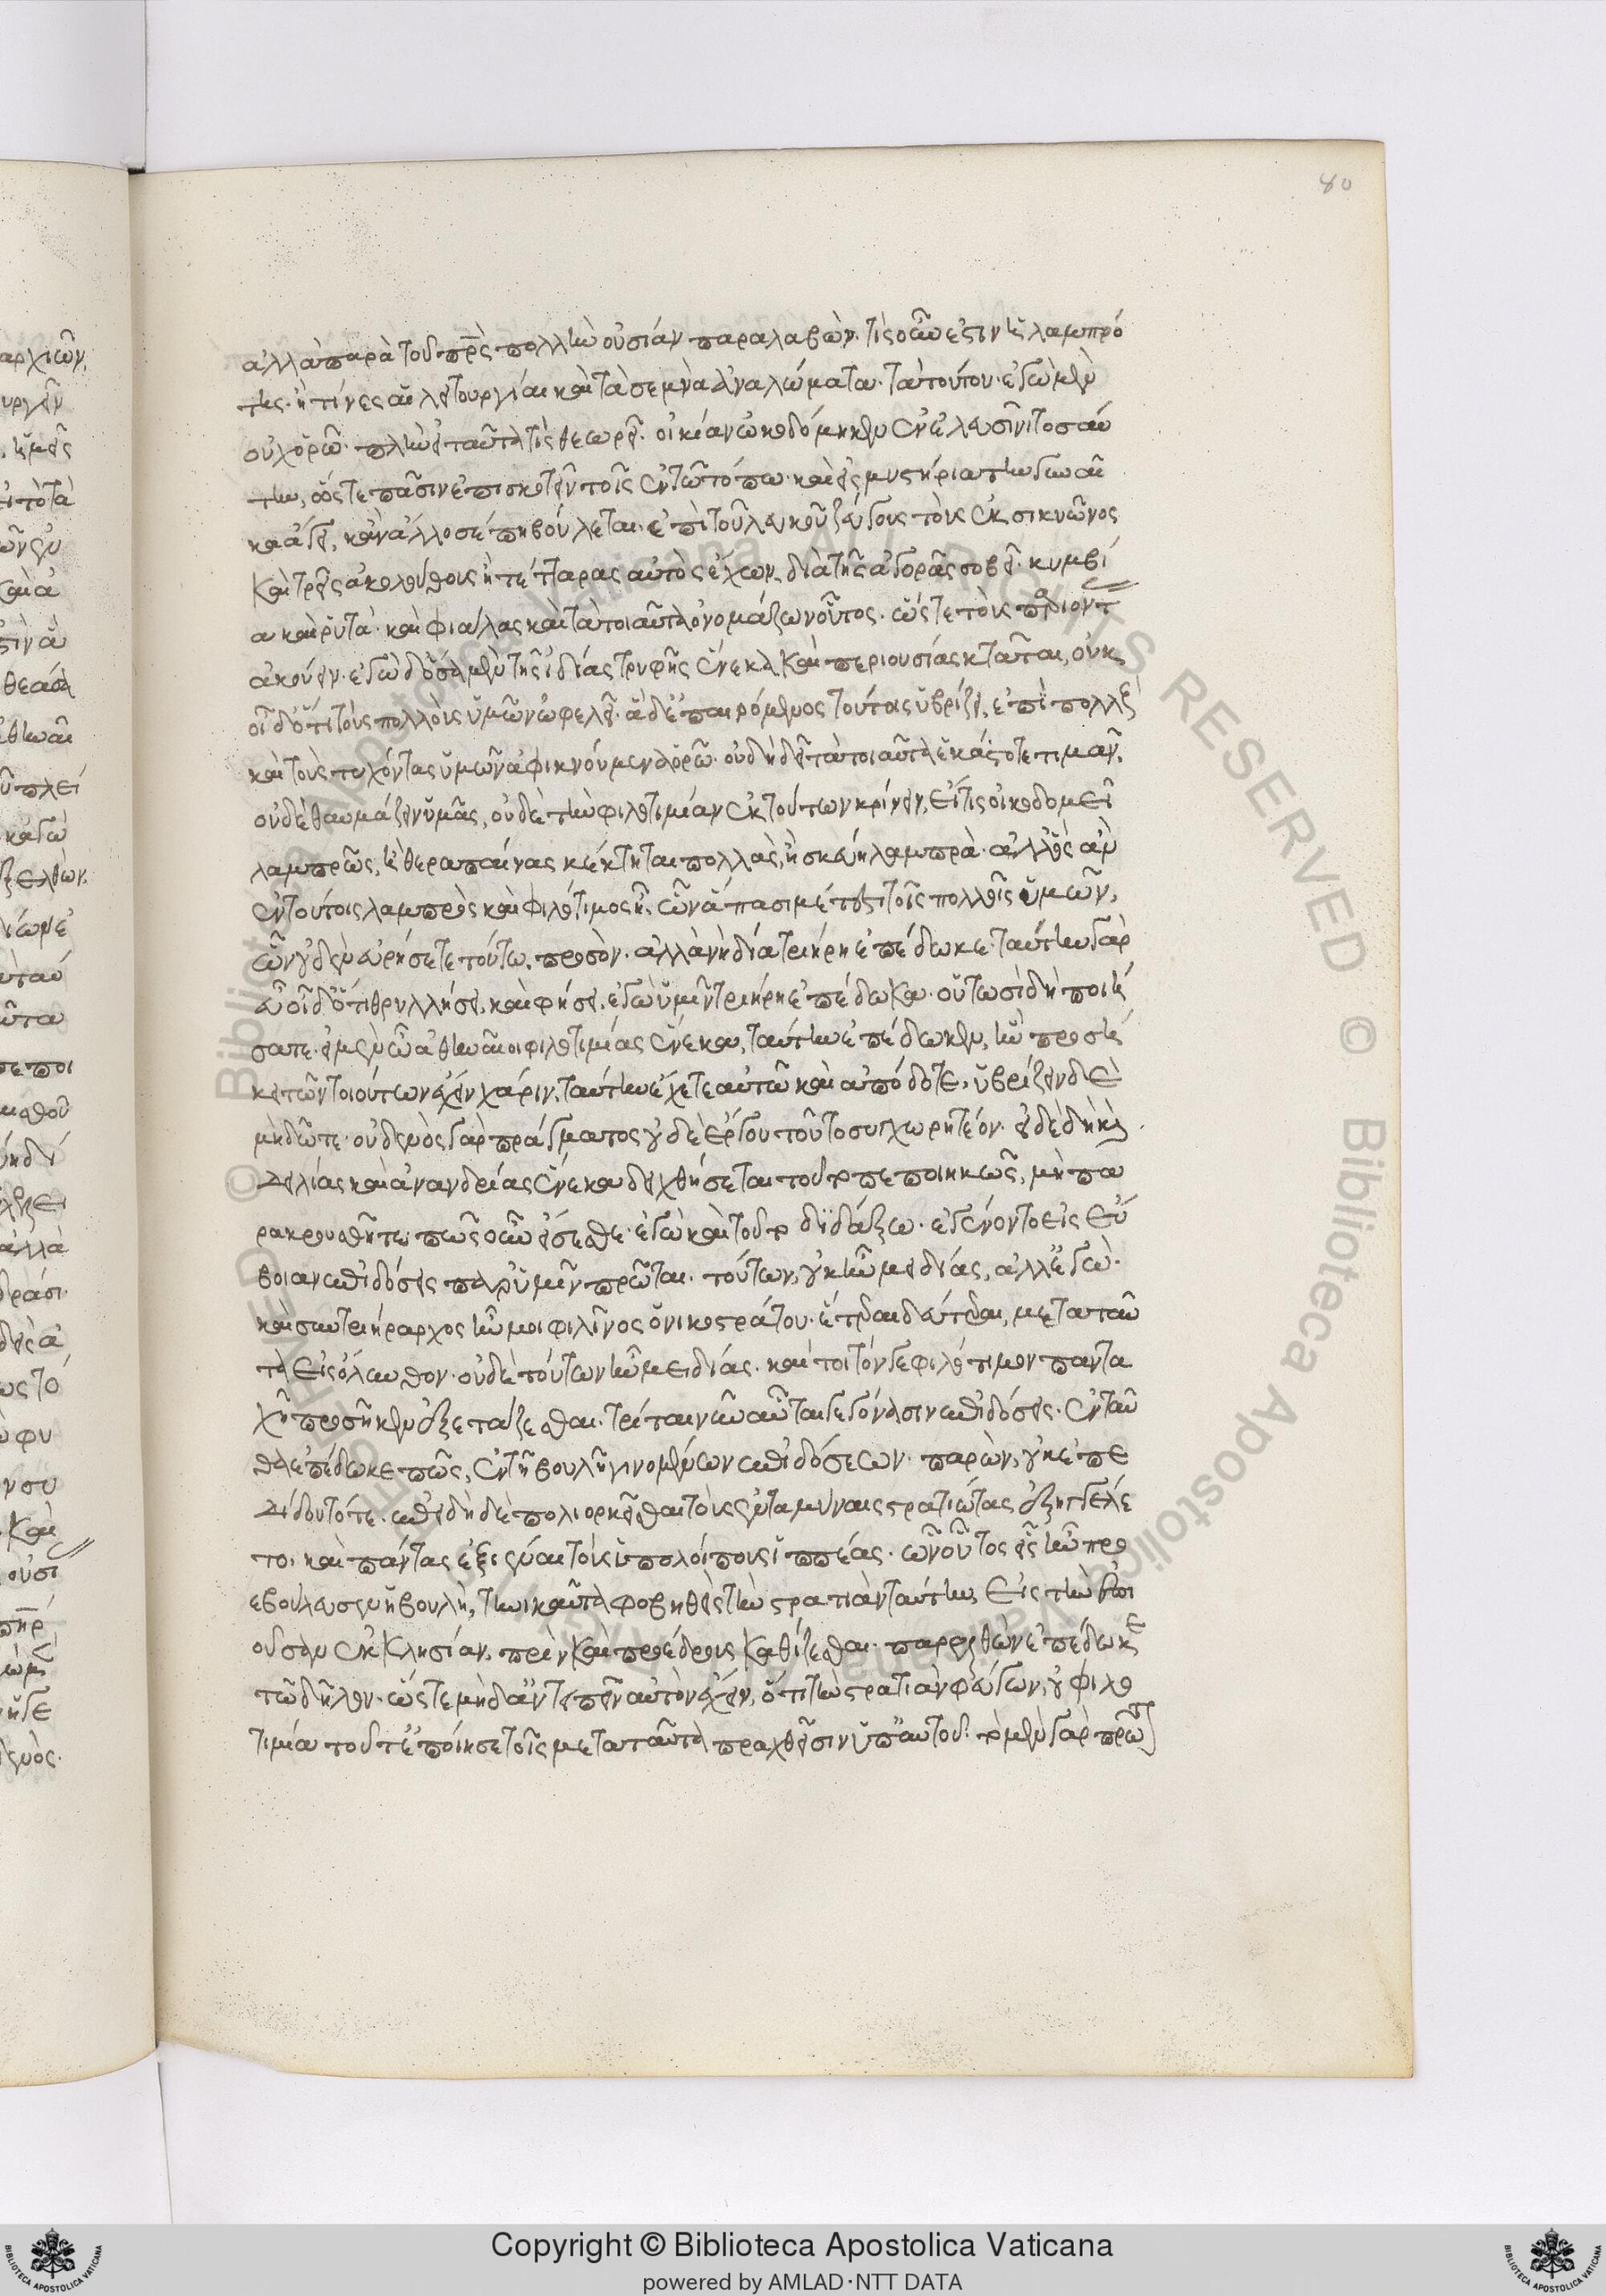 80
ἀλλὰ παρὰ τοῦ πρς πολλὴν οὐσίαν παραλαβὼν. τίς οὖν ἐστιν ἡ λαμπρό
της. ἢ τίνες αἱ λειτουργίαι καὶ τὰ σεμνὰ ἀναλώματα. τὰ τούτου. ἐγὼ μὲν
οὐχ ὁρῶ. πλὴν εἰ ταῦτα τίς θεωρεῖ. οἰκίαν ὠκοδόμηκεν ἐν ἐλευσῖνι τοσαύ
την, ὥστε πᾶσιν ἐπισκοτεῖν τοῖς ἐν τῷ τόπω. καὶ εἰς μυστήρια τὴν γυναῖ
κα ἄγει, κἂν ἄλλοσέ πη βούληται. ἐπὶ τοῦ λευκοῦ ζεύγους τοὺς ἐκ σικυῶνος
καὶ τρεῖς ἀκολούθους ἢ τέτταρας αὐτὸς ἔχων διὰ τῆς ἀγορᾶς σοβεῖ. κυμβί
α καὶ ῥυτὰ. καὶ φιάλας καὶ τὰ τοιαῦτα ὀνομάζων οὗτος. ὥστε τοὺς παριοντ
ἀκούειν. ἐγὼ δ' ὅσα μὲν τῆς ἰδίας τρυφῆς ἕνεκα καὶ περιουσίας κτᾶται, οὐκ
οἶδ' ὅτι τοὺς πολλοὺς ὑμῶν ὠφελεῖ. ἃ δ' ἐπαιρόμενος τούτοις ὑβρίζει, ἐπὶ πολλοὺς
καὶ τοὺς τυχόντας ὑμῶν ἀφικνούμενα ὁρῶ. οὐ δὴ δεῖ τὰ τοιαῦτα ἑκάστοτε τιμᾶν.
οὐδὲ θαυμάζειν ὑμᾶς, οὐδὲ τὴν φιλοτιμίαν ἐκ τούτων κρίνειν, εἴ τις οἰκοδομεῖ
λαμπρῶς, ἢ θεραπαίνας κέκτηται πολλὰς, ἢ σκεύη λαμπρὰ. ἀλλ' ὃς ἂν
ἐν τούτοις λαμπρὸς καὶ φιλότιμος ᾖ, ὧν ἅπασι μέτεστι τοῖς πολλοῖς ὑμῶν,
ὧν οὐδὲν εὑρήσετε τούτω προσὸν. ἀλλὰ νὴ δία τριήρη ἐπέδωκε. ταύτην γὰρ
εὖ οἶδ' ὅτι θρυλλήσει, καὶ φήσει, ἐγὼ ὑμῖν τριήρη ἐπέδωκα. οὕτωσὶ δὴ ποιή
σατε. εἰ μὲν ὦ ἄ ἀθηναῖοι φιλοτιμίας ἕνεκα, ταύτην ἐπέδωκεν, ἣν προσή
κει τῶν τοιούτων ἔχειν χάριν. ταύτην ἔχετε αὐτῷ καὶ ἀπόδοτε, ὑβρίζειν δὲ
μὴ δῶτε. οὐδενὸς γὰρ πράγματος οὐδὲ ἔργου τοῦτο συγχωρητέον. εἰ δὲ δὴ καὶ
δειλίας καὶ ἀνανδρίας ἕνεκα δειχθήσεται τοῦτο πεποιηκὼς, μὴ πα
ρακρουσθῆτε. πῶς οὖν εἴσεσθε. ἐγὼ καὶ τοῦτο διδάξω. ἐγένοντο εἰς εὔ
βοιαν ἐπιδόσεις παρ' ὑμῖν πρῶται. τούτων, οὐκ ἦν μειδίας, ἀλλ' ἐγὼ.
καὶ συντριήραρχος ἦν μοι φιλῖνος ὁ νικοστράτου. ἕτεραι δεύτεραι, μετὰ ταῦ
τα εἰς ὄλυνθον. οὐδὲ τούτων ἦν μειδίας. καίτοι τόν γε φιλότιμον πανta
χῇ προσῆκεν ἐξετάζεσθαι. τρίται νῦν αὗται γεγόνασιν ἐπιδόσεις. ἐνταῦ
θα ἐπέδωκε πῶς, ἐν τῇ βουλῇ γινομένων ἐπιδόσεων. παρὼν, οὐκ ἐπε
δίδου τότε. ἐπειδὴ δὲ πολιορκεῖσθαι τοὺς ἐν ταμύναις στρατιώτας ἐξηγγέλε
το. καὶ πάντας ἐξιέναι τοὺς ὑπολοίπους ἱππέας. ὧν οὗτος εἷς ἦν προ
εβούλευσεν ἡ βουλὴ, τηνικαῦτα φοβηθεὶς τὴν στρατιὰν ταύτην, εἰς τὴν ἐπι
οῦσαν ἐκκλησίαν, πρὶν καὶ προέδρους καθίζεσθαι. παρελθὼν ἐπέδωκε
τῷ δήλον. ὥστε μηδ' ἀντειπεῖν αὐτὸν ἔχειν, ὅτι τὴν στρατιὰν φεύγων, οὐ φιλο
τιμία τοῦτ' ἐποίησε τοῖς μετὰ ταῦτα πραχθεῖσιν ὑπ' αὐτοῦ. τὸ μὲν γὰρ πρῶτ